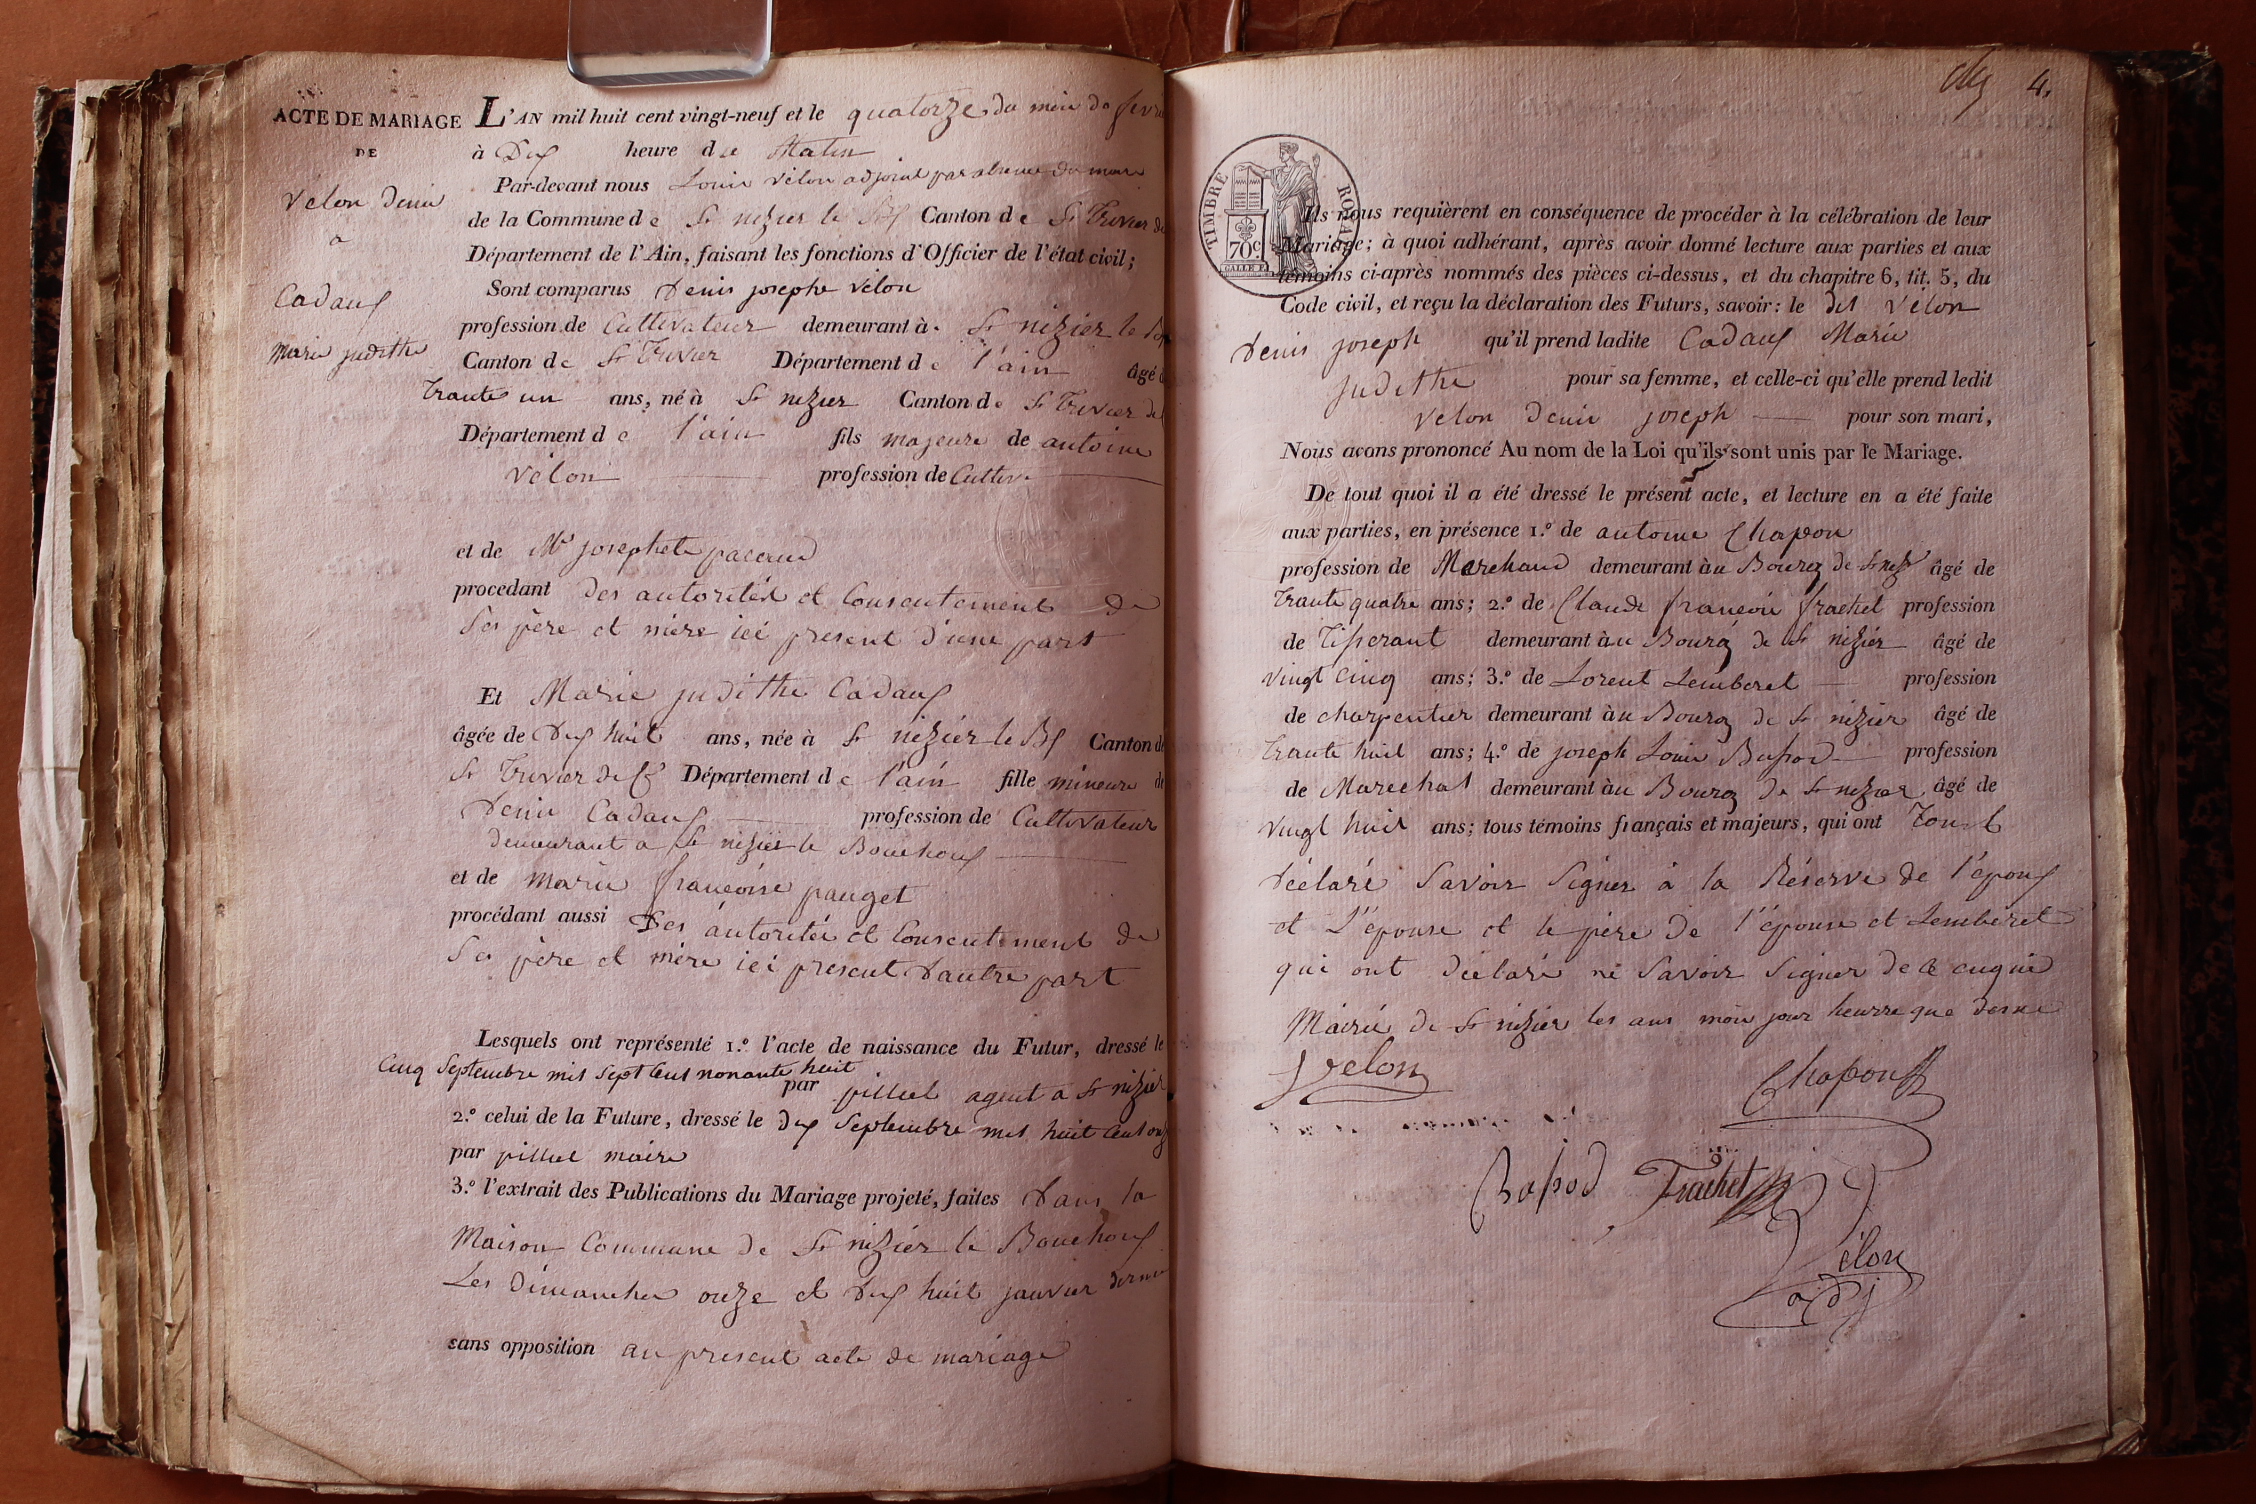 ACTE DE MARIAGE
DE
Vélon Denis
a
Cadaux
Marie judithe
L'AN mil huit cent vingt-neuf et le quatorze du mois de fevri
à Dix heure du Matin
Par-devant nous Louis Vélon adjoint par absence du maire
de la Commune de St nizier le Canton de St Trivier de
Département de l'Ain, faisant les fonctions d'Officier de l'état civil;
Sont comparus Denis josephe Vélon
profession de Cultivateur demeurant à St nizier le
Canton de St Trivier Département de l'ain âgé d
Trante un ans, né à St nizier Canton de St Trivier de
Département de l'ain fils majeure de antoine
Vélon profession de Cultiv.
et de Me josephete pacoud
procédant des autorités et Consentement de
Ses père et mère ici present d'une part
Et Marie judithe Cadaux
âgée de Dix huit ans, née à St nizier le Bx Canton de
St Trivier de Département de l'ain fille mineure de
Denis Cadaux profession de Cultivateur
demeurant a St nizier le Bouchoux
et de marie francoise pauget
procédant aussi Des autorités et Consentement de
Ses père et mère ici present dautre part
Lesquels ont représenté 1.º l'acte de naissance du Futur, dressé le
Cinq Septembre mil sept Cent nonante huit
par pilliet agent a St nizier
2.º celui de la Future, dressé le dix Septembre mil huit Cent onz
par pilliet maire
3.º l'extrait des Publications du Mariage projeté, faites Dans la
Maison Commune de St nizier le Bouchoux
Les dimanches onze et dix huit janvier dernier
sans opposition au present acte de mariage
4.
TIMBRE ROYAL
70 c
Ils nous requièrent en conséquence de procéder à la célébration de leur
Mariage; à quoi adhérant, après avoir donné lecture aux parties et aux
témoins ci-après nommés des pièces ci-dessus, et du chapitre 6, tit. 5, du
Code civil, et reçu la déclaration des Futurs, savoir: le dit Vélon
Denis joseph qu'il prend ladite Cadaux Marie
judithe pour sa femme, et celle-ci qu'elle prend ledit
Velon Denis joseph pour son mari,
Nous avons prononcé Au nom de la Loi qu'ils sont unis par le Mariage.
De tout quoi il a été dressé le présent acte, et lecture en a été faite
aux parties, en présence 1.º de antoine Chapon
profession de Marchand demeurant àu Bourg de St âgé de
Trante quatre ans; 2.º de Claude francois frachet profession
de Tisserant demeurant àu Bourg de St nizier âgé de
Vingt Cinq ans; 3.º de Lorent Lemberet profession
de charpentier demeurant àu Bourg de St nizier âgé de
trante huit ans; 4.º de joseph Louis profession
de Marechal demeurant àu Bourg de St nizier âgé de
Vingt huit ans; tous témoins français et majeurs, qui ont Tous
déclaré Savoir Signer à la Réserve de l'époux
et L'épouse et le père de l'épouse et Lemberet
qui ont déclaré ne Savoir Signer de ce enquis
Mairie de St nizier les ans mois jour heurre que desue
Velon
Chapon
Frachet
Vélon
adj